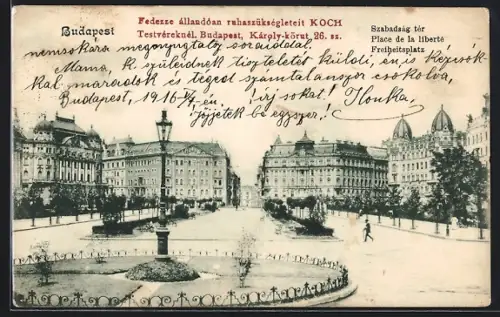 Budapest
Fedezze állandóan ruhaszükségleteit KOCH
Testvéreknél. Budapest, Károly-körut, 26. sz.
Szabadság tér
Place de la liberté
Freiheitsplatz
nemsokára megnyugtatij soraiddal.
Mama, k. szüleidnek tiszteletét küldi, én is kézcsók-
kal maradok és téged számtalanszor csókolva,
Budapest, 1916 én. írj sokat! Ilonka,
Jőjjetek be egyszer!